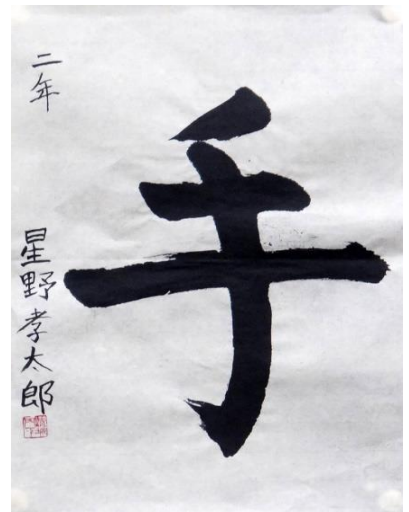 手
二年
星野孝太郎